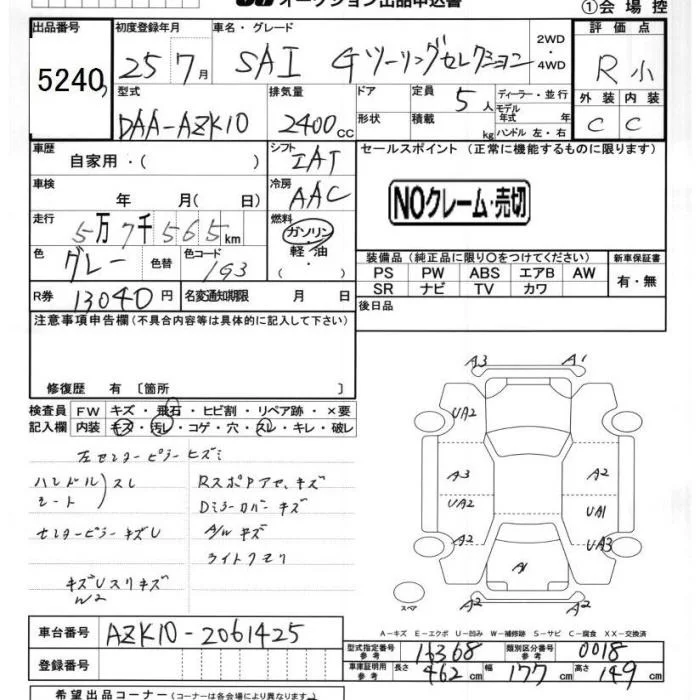 オークション出品申込書
①会場控
出品番号 5240
初度登録年月 25 7月
車名・グレード SAI Gツーリングセレクション 2WD・4WD
評価点 R小
外装 C 内装 C
型式 DAA-AZK10
排気量 2400cc
ドア形状
定員 5人
積載 kg
ディーラー・並行
モデル年式 年
ハンドル 左・右
車歴 自家用・( )
シフト IAT
セールスポイント (正常に機能するものに限ります)
NOクレーム・売切
車検 年 月( 日)
冷房 AAC
走行 5万7千565km
燃料 ガソリン・軽油 ( ・ )
色 グレー 色替
色コード 1G3
装備品(純正品に限り〇をつけてください)
新車保証書 有・無
PS PW ABS エアB AW
SR ナビ TV カワ
R券 13040円
名変通知期限 月 日
後日品
注意事項申告欄(不具合内容等は具体的に記入して下さい)
修復歴 有 〔箇所 〕
検査員記入欄
FW キズ・飛石・ヒビ割・リペア跡・×要
内装 キズ・汚レ・コゲ・穴・スレ・キレ・破レ
左センターピラーヒズミ
ハンドル シート スレ
RスポPアセ、キズ
Dミラーカバーキズ
センターピラーキズU
A/Wキズ
ライトクモリ
キズUスリキズ
W2
A3 A1
UA2
A3 A2
UA2 UA1
A2 UA3
A1
A2 A2
スペア
A-キズ E-エクボ U-凹み W-補修跡 S-サビ C-腐食 XX-交換済
車台番号 AZK10-2061425
型式指定番号 参考 16368 類別区分番号 参考 0018
登録番号
車庫証明用 参考 長さ 462cm 幅 177cm 高さ 149cm
希望出品コーナー(コーナーは各会場により異なります)